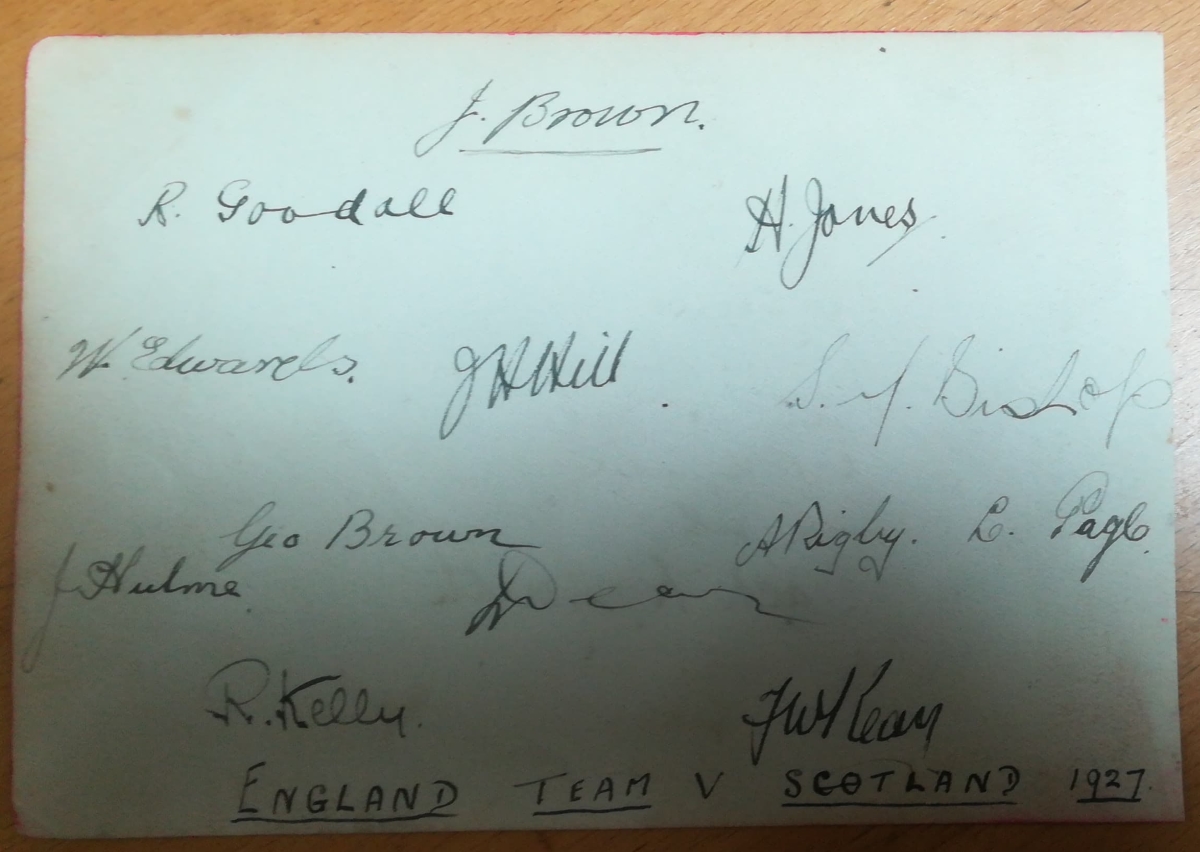 J. Brown.
R. Goodall H. Jones
W. Edwards. JH Hill S. M. Bishop
Geo Brown A Rigby. L. Page.
J Hulme W Dean
R. Kelly. FW Kean
ENGLAND TEAM V SCOTLAND 1927.